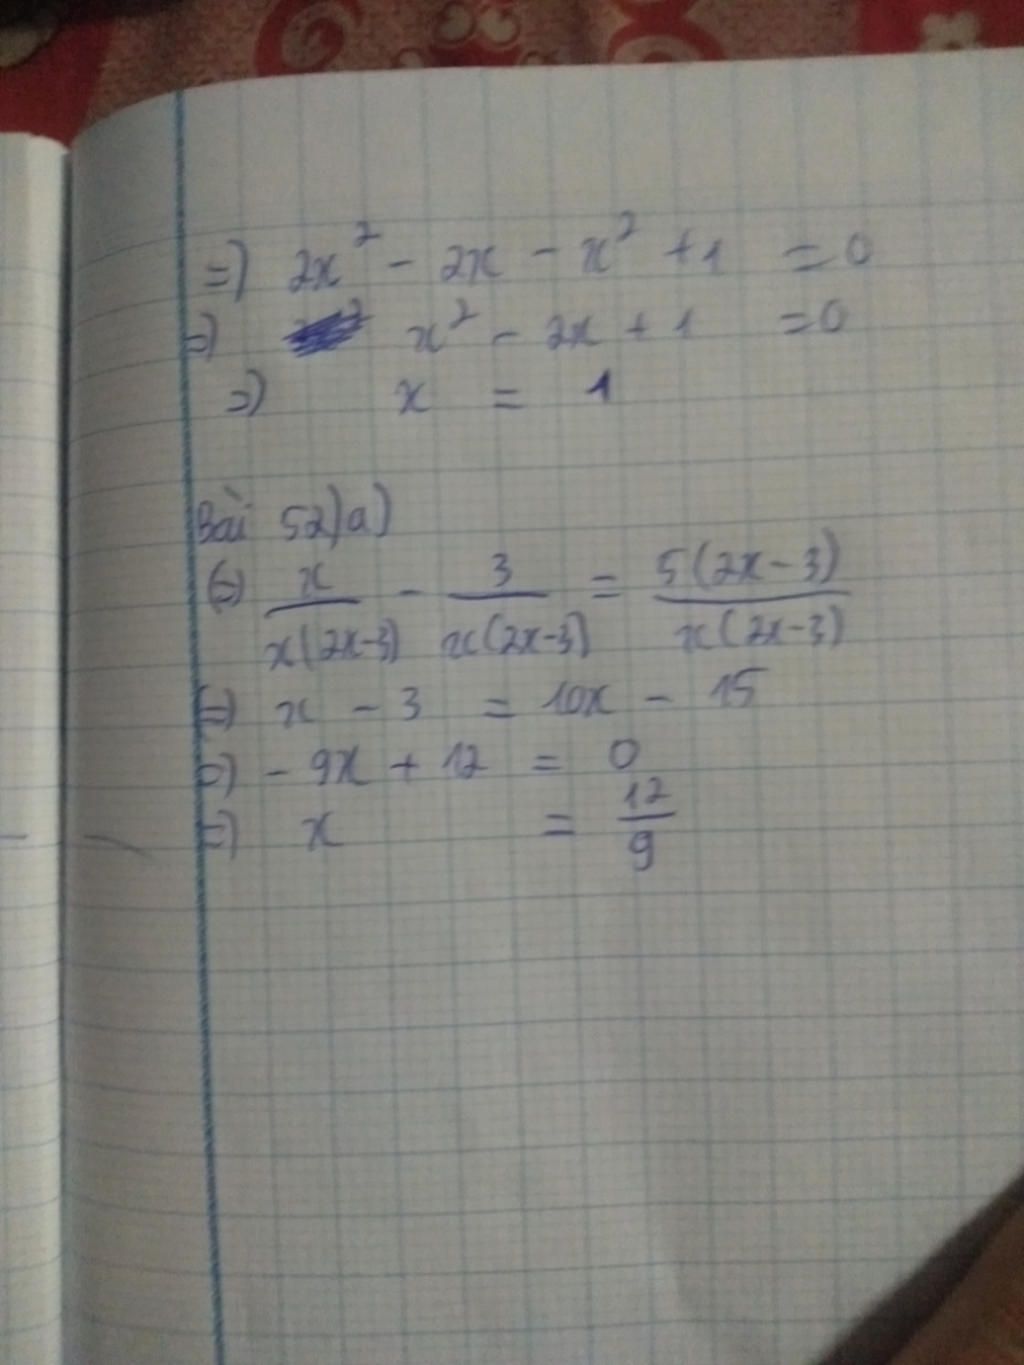 =) 2x² - 2x - x² + 1 = 0
=) x² - 2x + 1 = 0
=) x = 1
Bài 52)a)
(=) x/x(2x-3) - 3/x(2x-3) = 5(2x-3)/x(2x-3)
(=) x - 3 = 10x - 15
=) - 9x + 12 = 0
=) x = 12/9